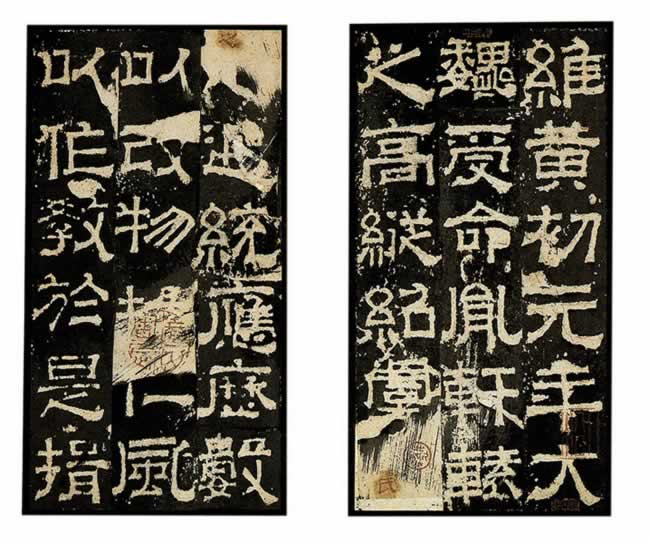 維黄初元年大
魏受命胤軒轅
之高縱紹虞
氏
之遐統應曆數
以改物揚仁風
以作教於是揖